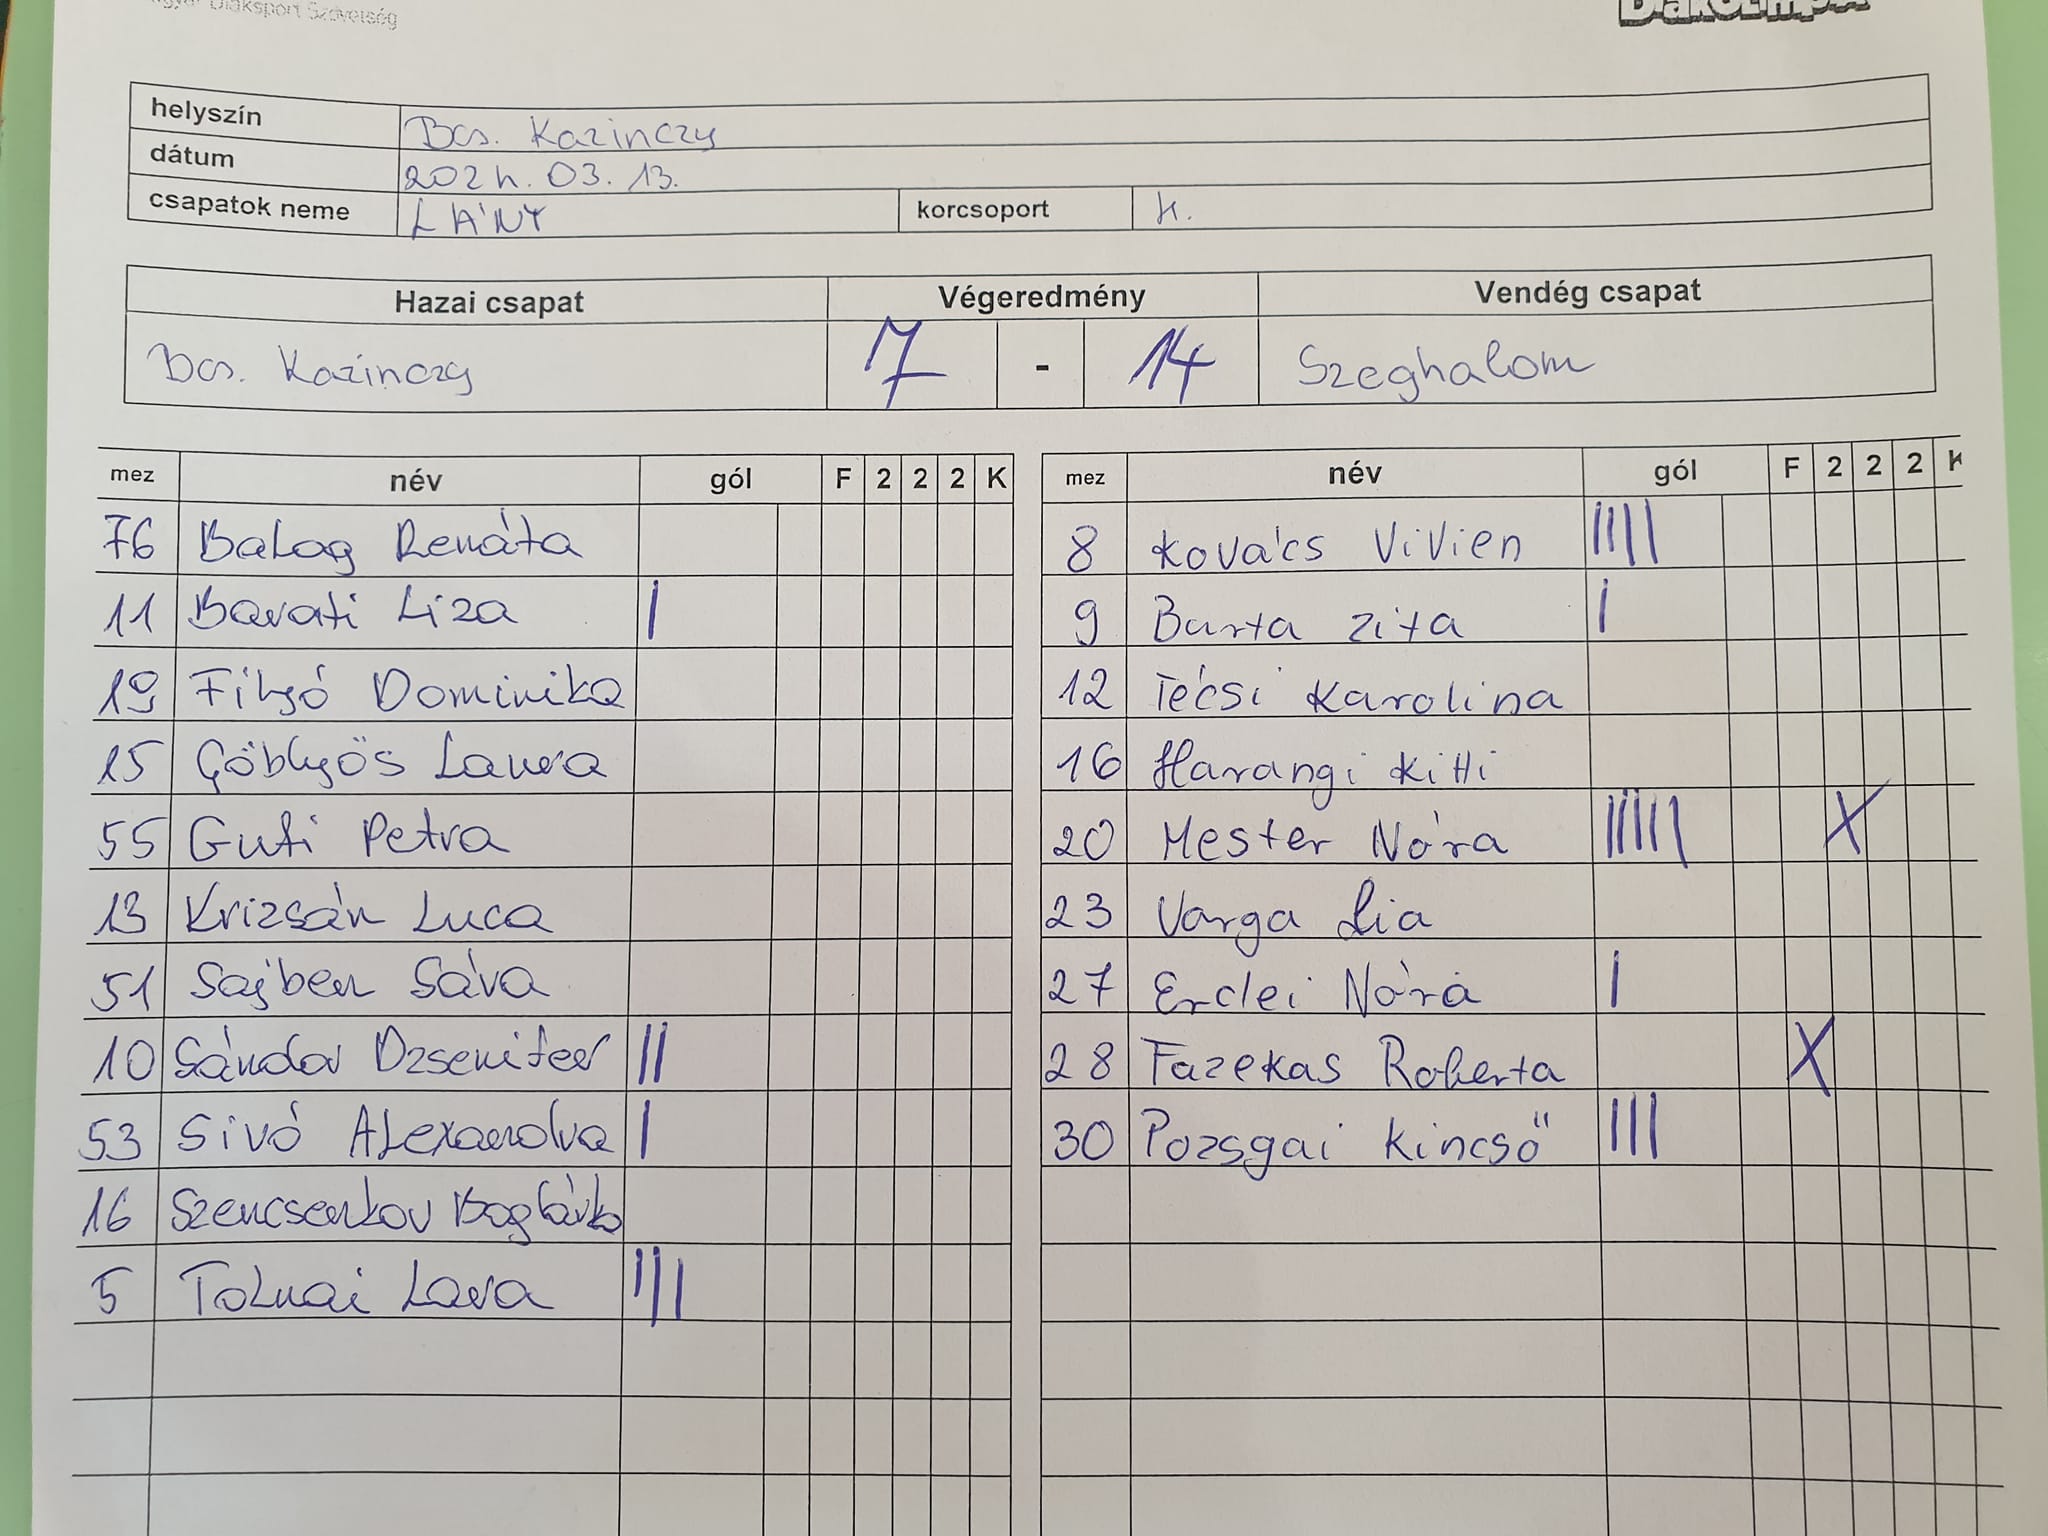 Diáksport Szövetség
DiákOlimpia
helyszín Bcs. Kazinczy
dátum 2024. 03. 13.
csapatok neme LÁNY korcsoport 4.
Hazai csapat Végeredmény Vendég csapat
Bcs. Kazinczy 7 - 14 Szeghalom
mez név gól F 2 2 2 K
76 Balog Renáta
11 Barati Liza |
19 Filyó Dominika
15 Göblyös Laura
55 Guti Petra
13 Krizsán Luca
51 Sajben Sára
10 Sándor Dzsenifer ||
53 Sivó Alexandra |
16 Szencsenkov Boglárka
5 Tolnai Lara |||
mez név gól F 2 2 2 K
8 Kovács Vivien ||||
9 Barta Zita |
12 Técsi Karolina
16 Harangi Kitti
20 Mester Nóra ||||| X
23 Varga Lia
27 Erdei Nóra |
28 Fazekas Roberta X
30 Pozsgai Kincső |||